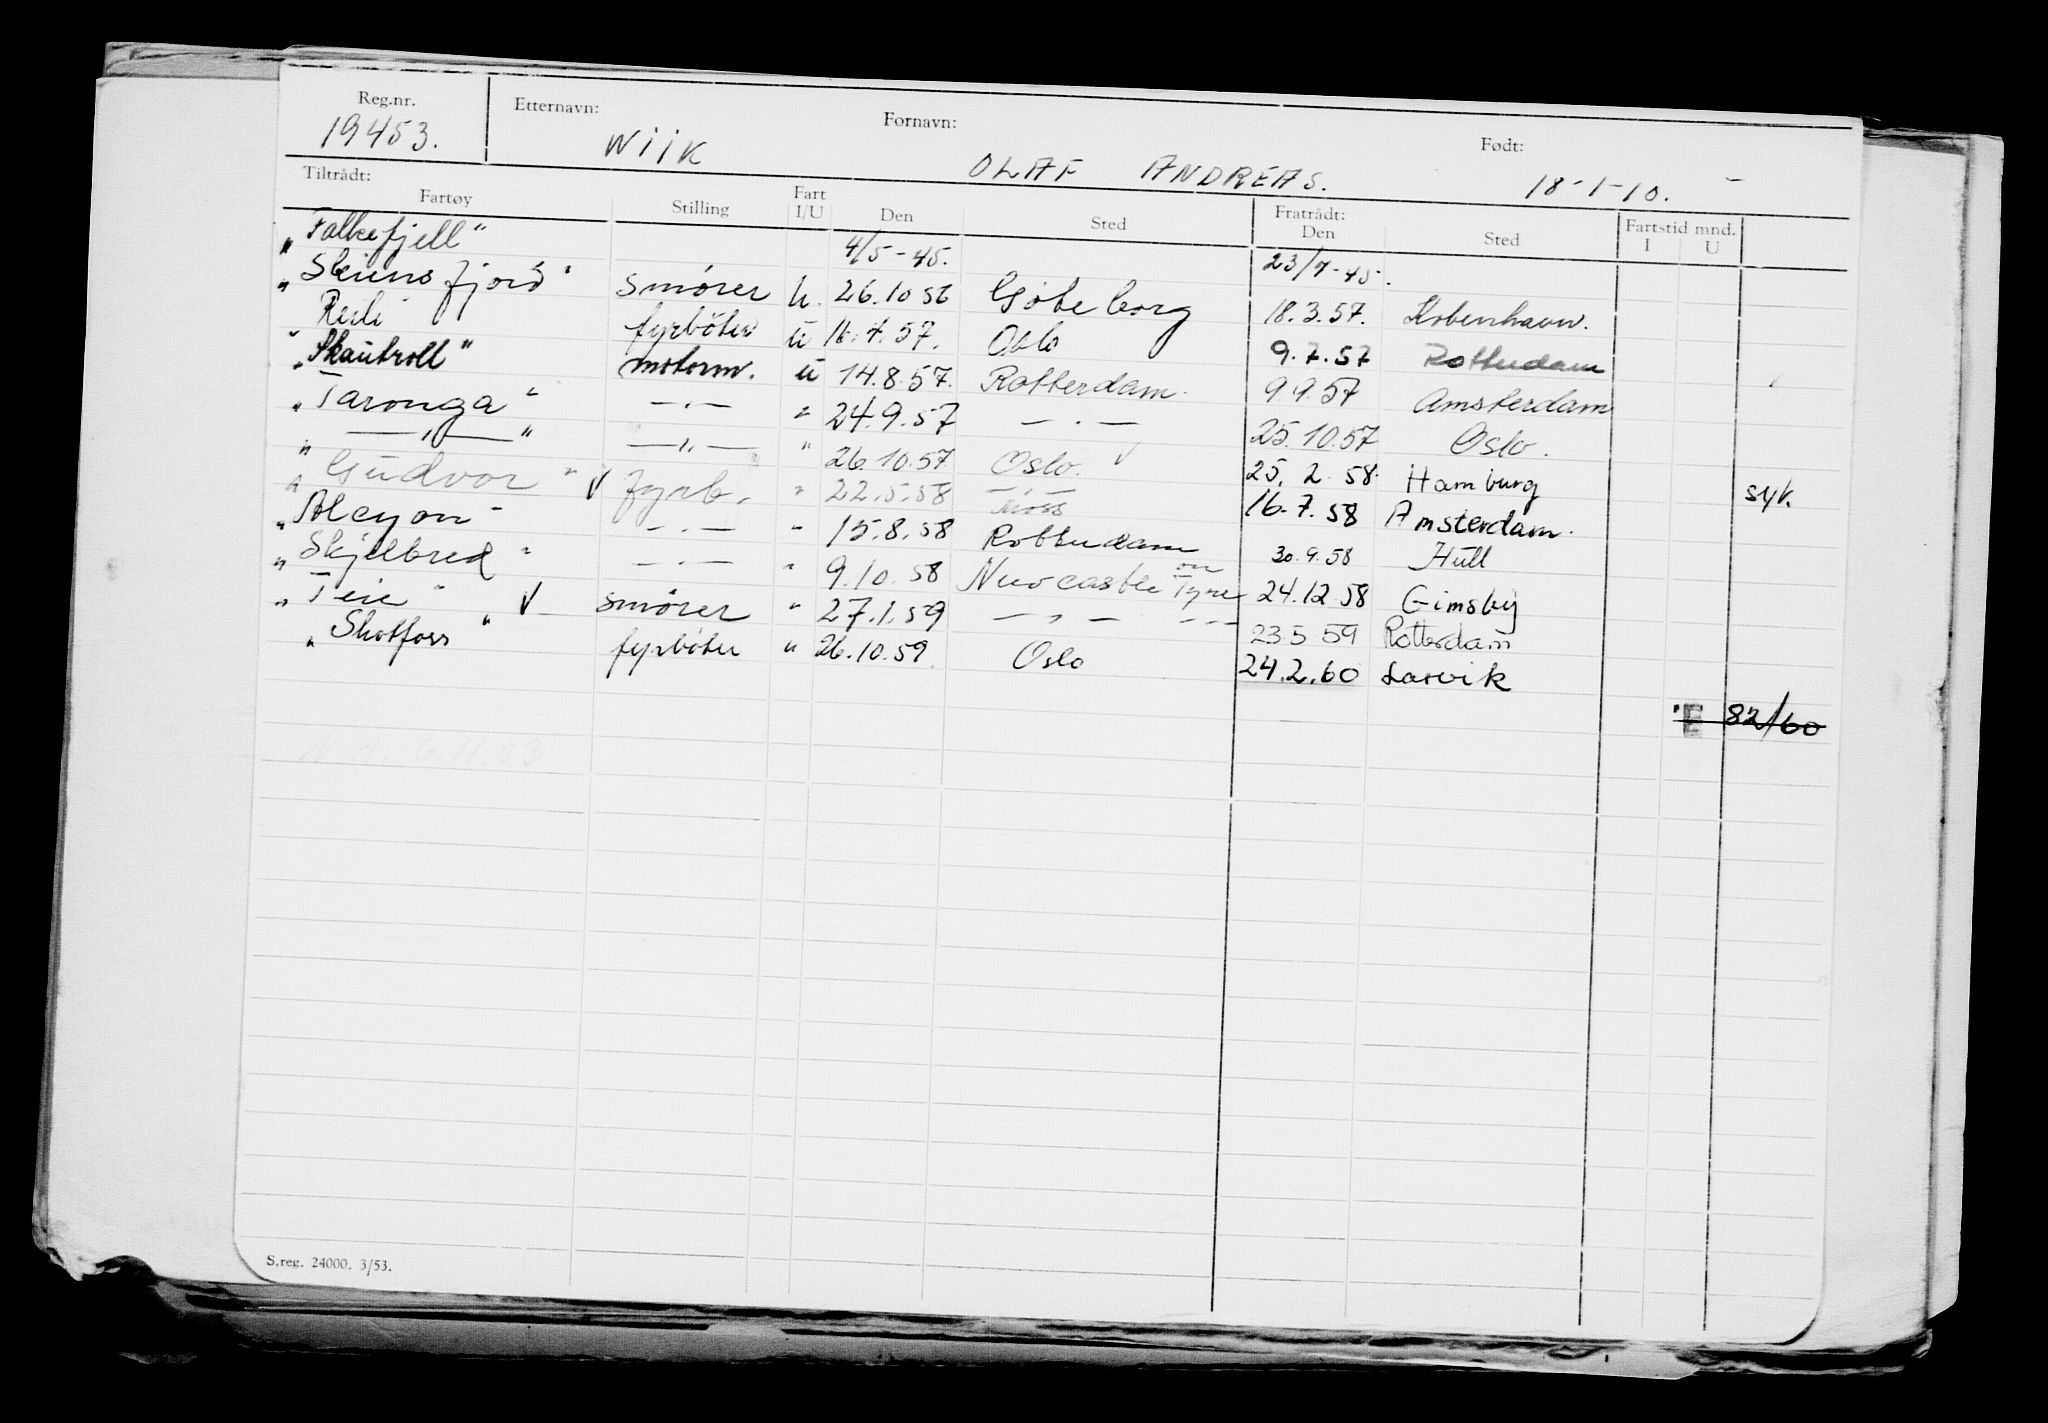 Reg.nr. Etternavn: Fornavn: Født:
19453. WIIK OLAF ANDREAS. 18-1-10.
Tiltrådt: Fratrådt:
Fartøy Stilling Fart I/U Den Sted Den Sted Fartstid mnd. I U
"Falkefjell" 4/5-45. 23/7-45.
"Skiensfjord" smører u. 26.10 56 Göteborg 18.3.57. København.
Risli fyrböter u 16.4.57. Oslo 9.7.57 Rotterdam
"Skautroll" motorm. u 14.8.57. Rotterdam. 9.9.57 Amsterdam
"Taronga" —"— " 24.9.57 —"— 25.10.57 Oslo.
" —"— " —"— " 26.10.57 Oslo. 25. 2. 58. Hamburg syk.
"Gudvor" fyrb. " 22.5.58 Moss 16.7.58 Amsterdam.
"Alcyon" —"— " 15.8.58 Rotterdam 30.9.58 Hull
"Skjelbred" —"— " 9.10.58 Newcastle on Tyne 24.12.58 Gimsby
"Teie" smører " 27.1.59 —"— 23.5 59 Rotterdam
"Skotfoss" fyrböter " 26.10.59. Oslo 24.2.60 Larvik
E 82/60
M.A. 6.11.53
S.reg. 24000. 3/53.